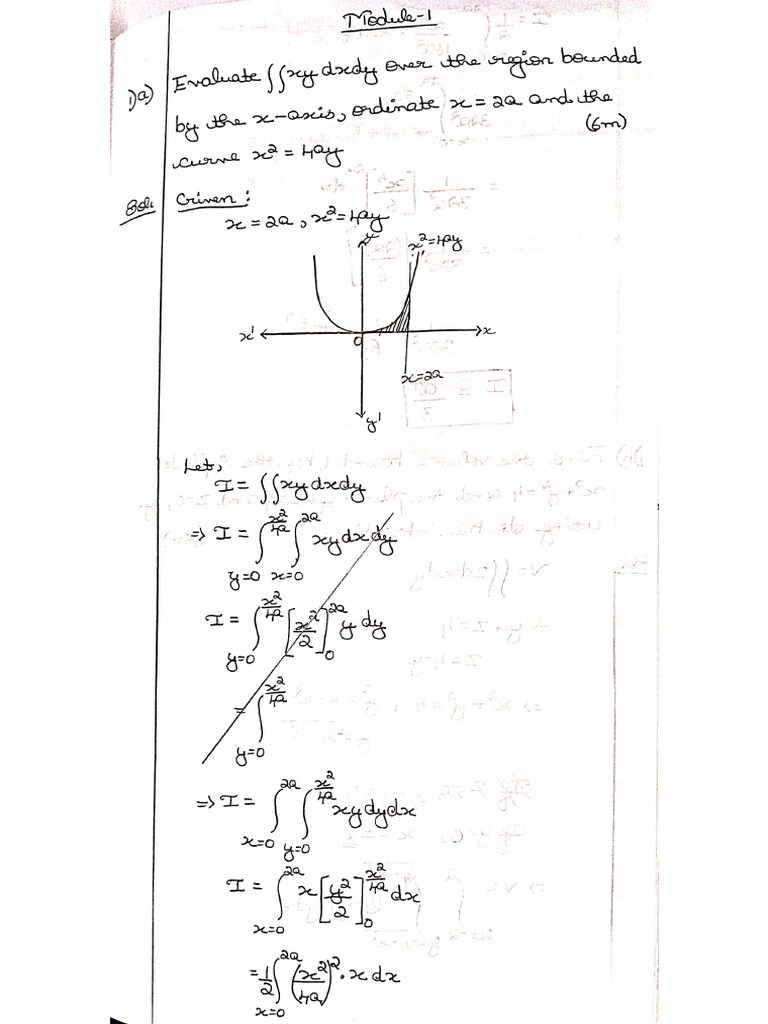 Module-1
1)a) Evaluate ∬xy dxdy over the region bounded
by the x-axis, ordinate x = 2a and the
curve x² = 4ay (6m)
Sol: Given:
x = 2a, x² = 4ay
y
x²=4ay
x' x
0
x=2a
y'
Let,
I = ∬xy dxdy
=> I = ∫_{y=0}^{x²/4a} ∫_{x=0}^{2a} xy dx dy
I = ∫_{y=0}^{x²/4a} [x²/2]_0^{2a} y dy
= ∫_{y=0}^{x²/4a}
=> I = ∫_{x=0}^{2a} ∫_{y=0}^{x²/4a} xy dy dx
I = ∫_{x=0}^{2a} x [y²/2]_0^{x²/4a} dx
= 1/2 ∫_{x=0}^{2a} (x²/4a)² . x dx